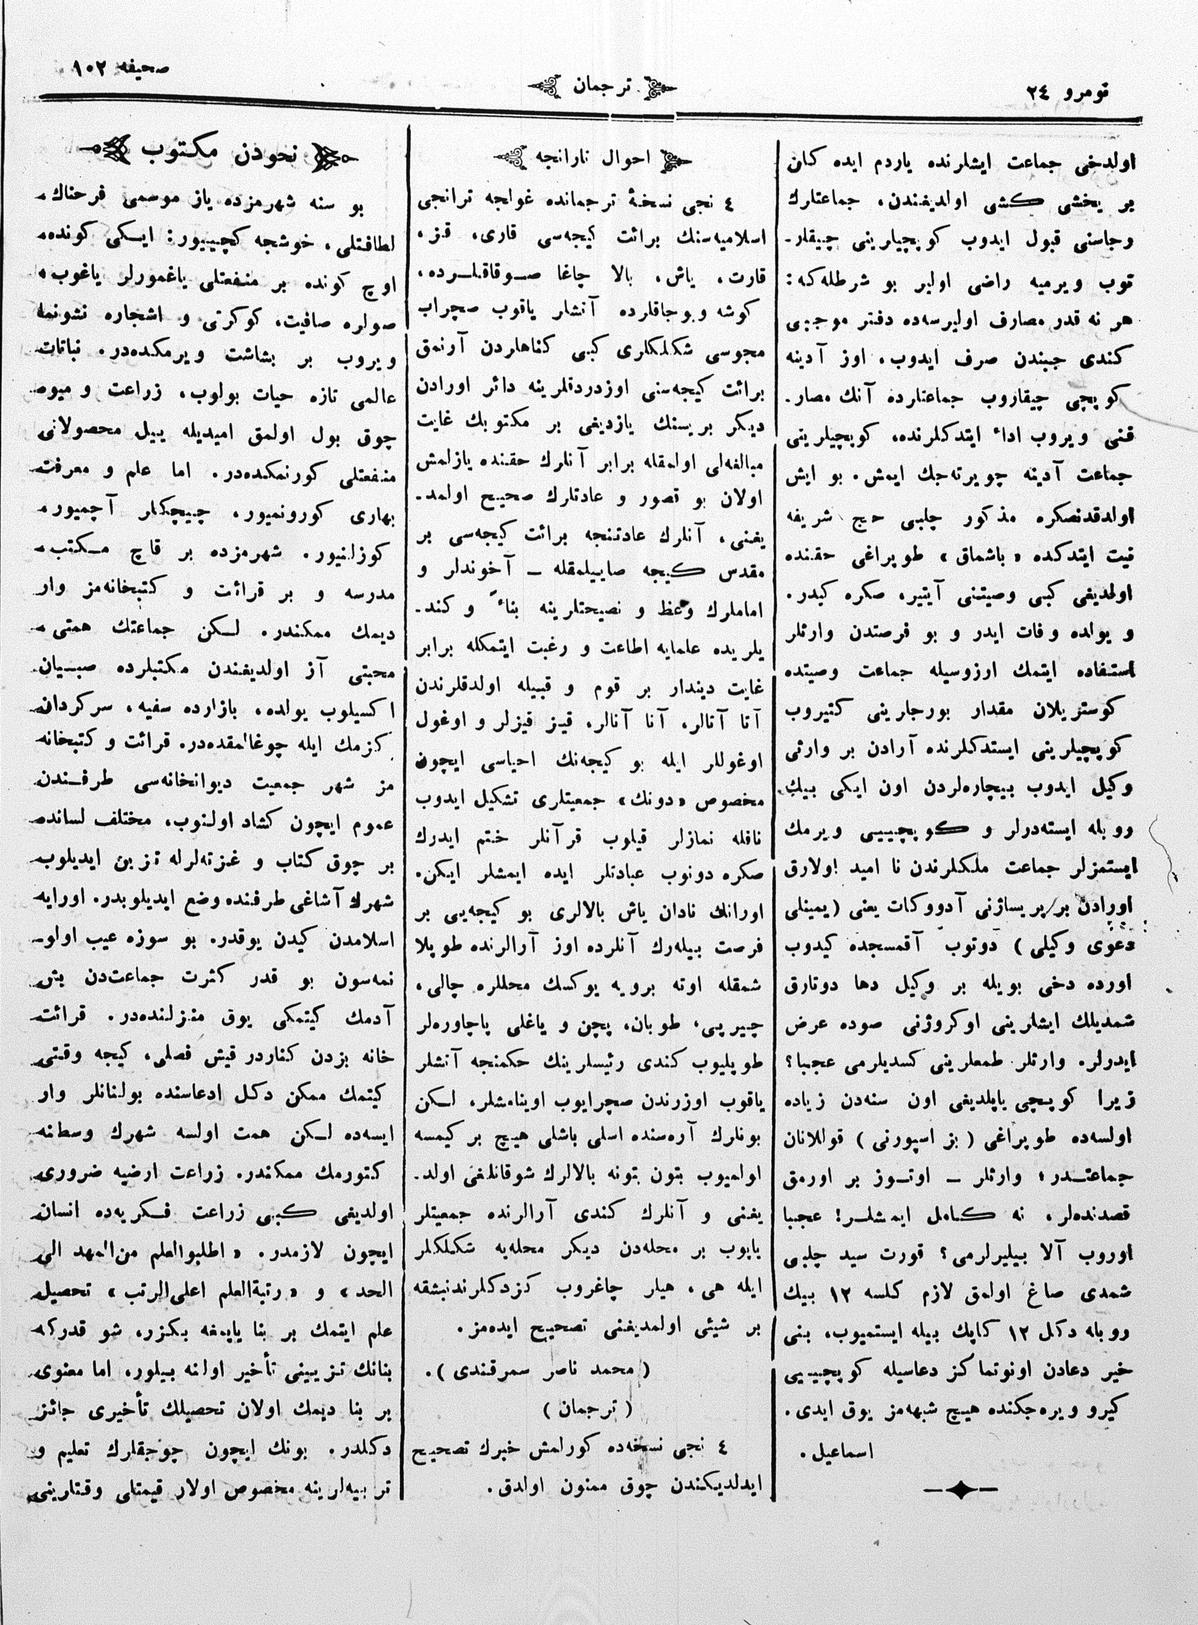 نومرو ٢٤
ترجمان
صحیفه ١٠٢
اولدخی جماعت ایشلرنده یاردم ایده کان
بر یخشی کشی اولدیغندن، جماعتلرك
رجاسنی قبول ایدوب کوپچیلرینی چیقار-
توب ویرمیه راضی اولیر بو شرطله که:
هر نه قدر مصارف اولیرسه ده دفتر موجبی
کندی جیبندن صرف ایدوب، اوز آدینه
کوپچی چیقاروب جماعتلرده آنك مصار-
فنی ویروب اداء ایتدکلرنده، کوپچیلرینی
جماعت آدینه چویرته جك ایمش. بو ایش
اولدقدنصکره مذکور چلبی حج شریفه
نیت ایتدکده «باشماق» طوپراغی حقنده
اولدیغی کبی وصیتنی آیتیر، صکره کیدر.
و یولده وفات ایدر و بو فرصتدن وارثلر
استفاده ایتمك ارزوسیله جماعت وصیتده
کوستریلان مقدار بورجلرینی کتیروب
کوپچیلرینی ایستدکلرنده آرادن بر وارثی
وکیل ایدوب بیچاره لردن اون ایکی بیك
روبله ایسته درلر و کوپچییی ویرمك
ایستمزلر جماعت ملکلرندن نا امید اولارق
اورادن بر پریساژنی آدووکات یعنی (یمینلی
دعوی وکیلی) دوتوب آقمسجده کیدوب
اورده دخی بویله بر وکیل دها دوتارق
شمدیلك ایشلرینی اوکروژنی صوده عرض
ایدرلر. وارثلر طمعلرینی کسدیلرمی عجبا؟
زیرا کوپچی یاپلدیغی اون سنه دن زیاده
اولسه ده طوپراغی (بز اسپورنی) قوللانان
جماعتدر؛ وارثلر ــ اوتوز بر اورمق
قصدنده لر. نه کامل ایمشلر! عجبا
اوروب آلا بیلیرلرمی؟ قورت سید چلبی
شمدی صاغ اولمق لازم کلسه ١٢ بیك
روبله دکل ١٢ کاپك بیله ایستمیوب، بنی
خیر دعادن اونوتماکز دعاسیله کوپچییی
کیرو ویره جکنده هیچ شبهه مز یوق ایدی.
اسماعیل.
احوال نارانجه
٤ نجی نسخهٔ ترجمانده غولجه ترانجی
اسلامیه سنك برائت کیجه سی قاری، قز،
قارت، یاش، بالا چاغا صوقاقلرده،
کوشه وبوجاقلرده آتشلر یاقوب صچراب
مجوسی شکللری کبی کناهلردن آرنمق
برائت کیجه سنی اوزدردقلرینه دائر اورادن
دیکر بریسنك یازدیغی بر مکتوبك غایت
مبالغه لی اولمقله برابر آنلرك حقنده یازلمش
اولان بو قصور و عادتلرك صحیح اولمد-
یغنی، آنلرك عادتنجه برائت کیجه سی بر
مقدس کیجه صاییلمقله ــ آخوندلر و
اماملرك وعظ و نصیحتلرینه بناءً و کند-
یلریده علمایه اطاعت و رغبت ایتمکله برابر
غایت دیندار بر قوم و قبیله اولدقلرندن
آتا آتالر، آنا آنالر، قیز قیزلر و اوغول
اوغوللر ایله بو کیجه نك احیاسی ایچون
مخصوص «دونك» جمعیتلری تشکیل ایدوب
نافله نمازلر قیلوب قرآنلر ختم ایدرك
صکره دونوب عبادتلر ایده ایمشلر ایکن.
اورانك نادان یاش بالالری بو کیجه یی بر
فرصت بیله رك آنلرده اوز آرالرنده طوپلا
شمقله اوته برویه یوکسك محللره چالی،
چیرپی، طوبان، پچن و یاغلی پاچاوره لر
طوپلیوب کندی رئیسلرینك حکمنجه آتشلر
یاقوب اوزرندن صچرایوب اوینامشلر، لکن
بونلرك آره سنده اسلی باشلی هیچ بر کیمسه
اولمیوب بتون بتونه بالالرك شوقانلغی اولد-
یغنی و آنلرك کندی آرالرنده جمعیتلر
یاپوب بر محله دن دیکر محله یه شکلکلر
ایله هی، هیلر چاغروب کزدکلرندنبشقه
بر شیئی اولمدیغنی تصحیح ایده مز.
(محمد ناصر سمرقندی).
(ترجمان)
٤ نجی نسخه ده کورلمش خبرك تصحیح
ایدلدیکندن چوق ممنون اولدق.
نخودن مکتوب
بو سنه شهرمزده یاز موسمی فرحناك،
لطافتلی، خوشجه کچییور: ایکی کونده،
اوچ کونده بر منفعتلی یاغمورلر یاغوب،
صولره صافیت، کوکرتی و اشجاره نشونما
ویروب بر بشاشت ویرمکده در. نباتات
عالمی تازه حیات بولوب، زراعت و میوه
چوق بول اولمق امیدیله ییل محصولاتی
منفعتلی کورنمکده در. اما علم و معرفت
بهاری کورونمیور، چیچکلر آچمیور،
کوزلنیور. شهرمزده بر قاچ مکتب،
مدرسه و بر قرائت و کتبخانه مز وار
دیمك ممکندر. لکن جماعتك همتی،
محبتی آز اولدیغندن مکتبلرده صبیان
اکسیلوب یولده، بازارده سفیه، سرکردان
کزمك ایله چوغالمقده در. قرائت و کتبخانه
مز شهر جمعیت دیوانخانه سی طرفندن
عموم ایچون کشاد اولنوب، مختلف لسانده
بر چوق کتاب و غزته لرله تزیین ایدیلوب
شهرك آشاغی طرفنده وضع ایدیلوبدر. اورایه
اسلامدن کیدن یوقدر. بو سوزه عیب اولو-
نمه سون بو قدر کثرت جماعت دن بش
آدمك کیتمکی یوق منزلنده در. قرائت
خانه بزدن کناردر قیش فصلی، کیجه وقتی
کیتمك ممکن دکل ادعاسنده بولنانلر وار
ایسه ده لکن همت اولسه شهرك وسطنه
کتورمك ممکندر. زراعت ارضیه ضروری
اولدیغی کبی زراعت فکریه ده انسان
ایچون لازمدر. «اطلبوالعلم من المهد الی
الحد» و «رتبةالعلم اعلی الرتب» تحصیل
علم ایتمك بر بنا یاپمغه بکزر، شو قدرکه
بنانك تزیینی تأخیر اولنه بیلور، اما معنوی
بر بنا دیمك اولان تحصیلك تأخیری جائز
دکلدر. بونك ایچون چوجقلرك تعلیم و
تربیه لرینه مخصوص اولان قیمتلی وقتلرینی